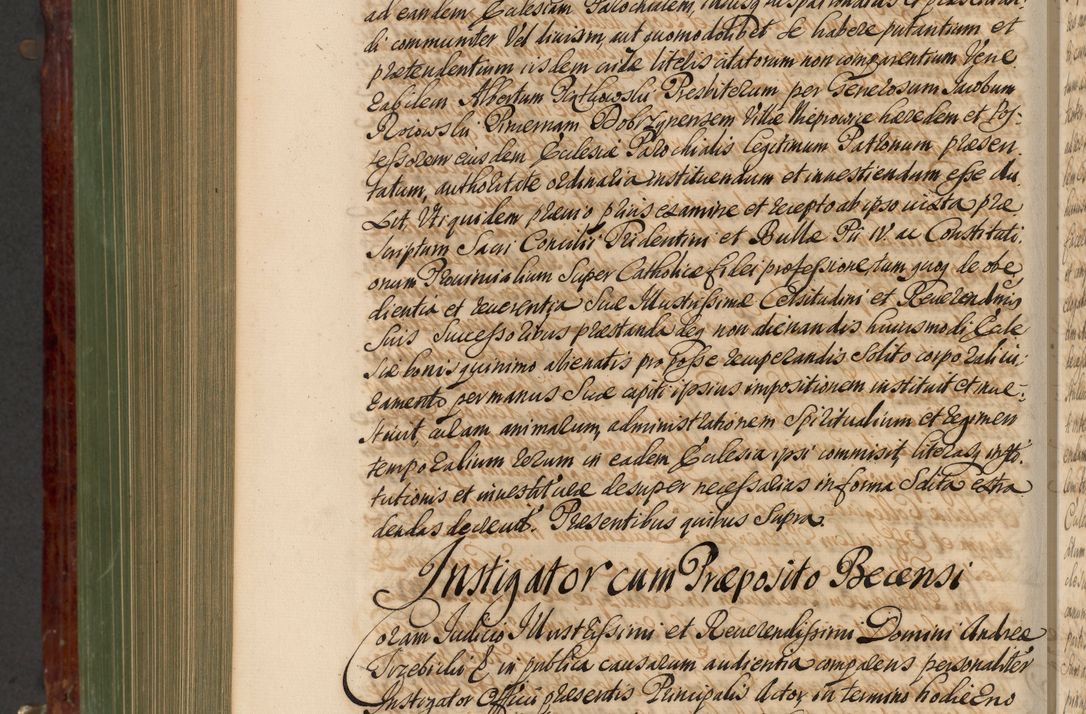 ad eandem Ecclesiam Parochialem, iususq₃ ius patronatus et præsentan:
di communiter vel divisim, aut quomodolibet se habere putantium et
prætendentium iisdem curiæ literis citatorum non comparentium Vene
rabilem Albertum Piątkowski Presbiterum per Generosum Jacobum
Roiowski Pincernam Dobrzynensem Villæ Wieprowice hæredem et Pos:
sessorem eiusdem Ecclesiæ Parochialis legitimum Patronum præsen
tatum, authoritate ordinaria instituendum et investiendum esse du
xit, Uti quidem prævio prius examine et recepto ab ipso iuxta præ
scriptum Sacri Concilii Tridentini et Bullæ Pii IV. ac Constituti:
onum Provincialium super Catholicæ fidei professione, tum quoq₃ de obe
dientia et reverentia Suæ Illustrissimæ Celsitudini et Reverendmis
suis Successoribus præstanda deq₃ non alienandis huiusmodi Eccle
siæ bonis quinimo alienatis pro posse recuperandis solito corporali iu:
ramento per manus Suæ capiti ipsius impositionem instituit et inve:
stivit curam animarum, administrationem Spiritualium et regimen
temporalium rerum in eadem Ecclesia ipsi commisit, literasq₃ insti:
tutionis et investituræ desuper necessarias in forma solita extra
dendas decrevit. Præsentibus quibus supra.
Instigator cum Præposito Becensi
Coram Judicio Illustrissimi et Reverendissimi Domini Andreæ
Trzebicki E in publica causarum audientia comparens personaliter
Instigator Officii præsentis Principalis Actor, in termino hodierno